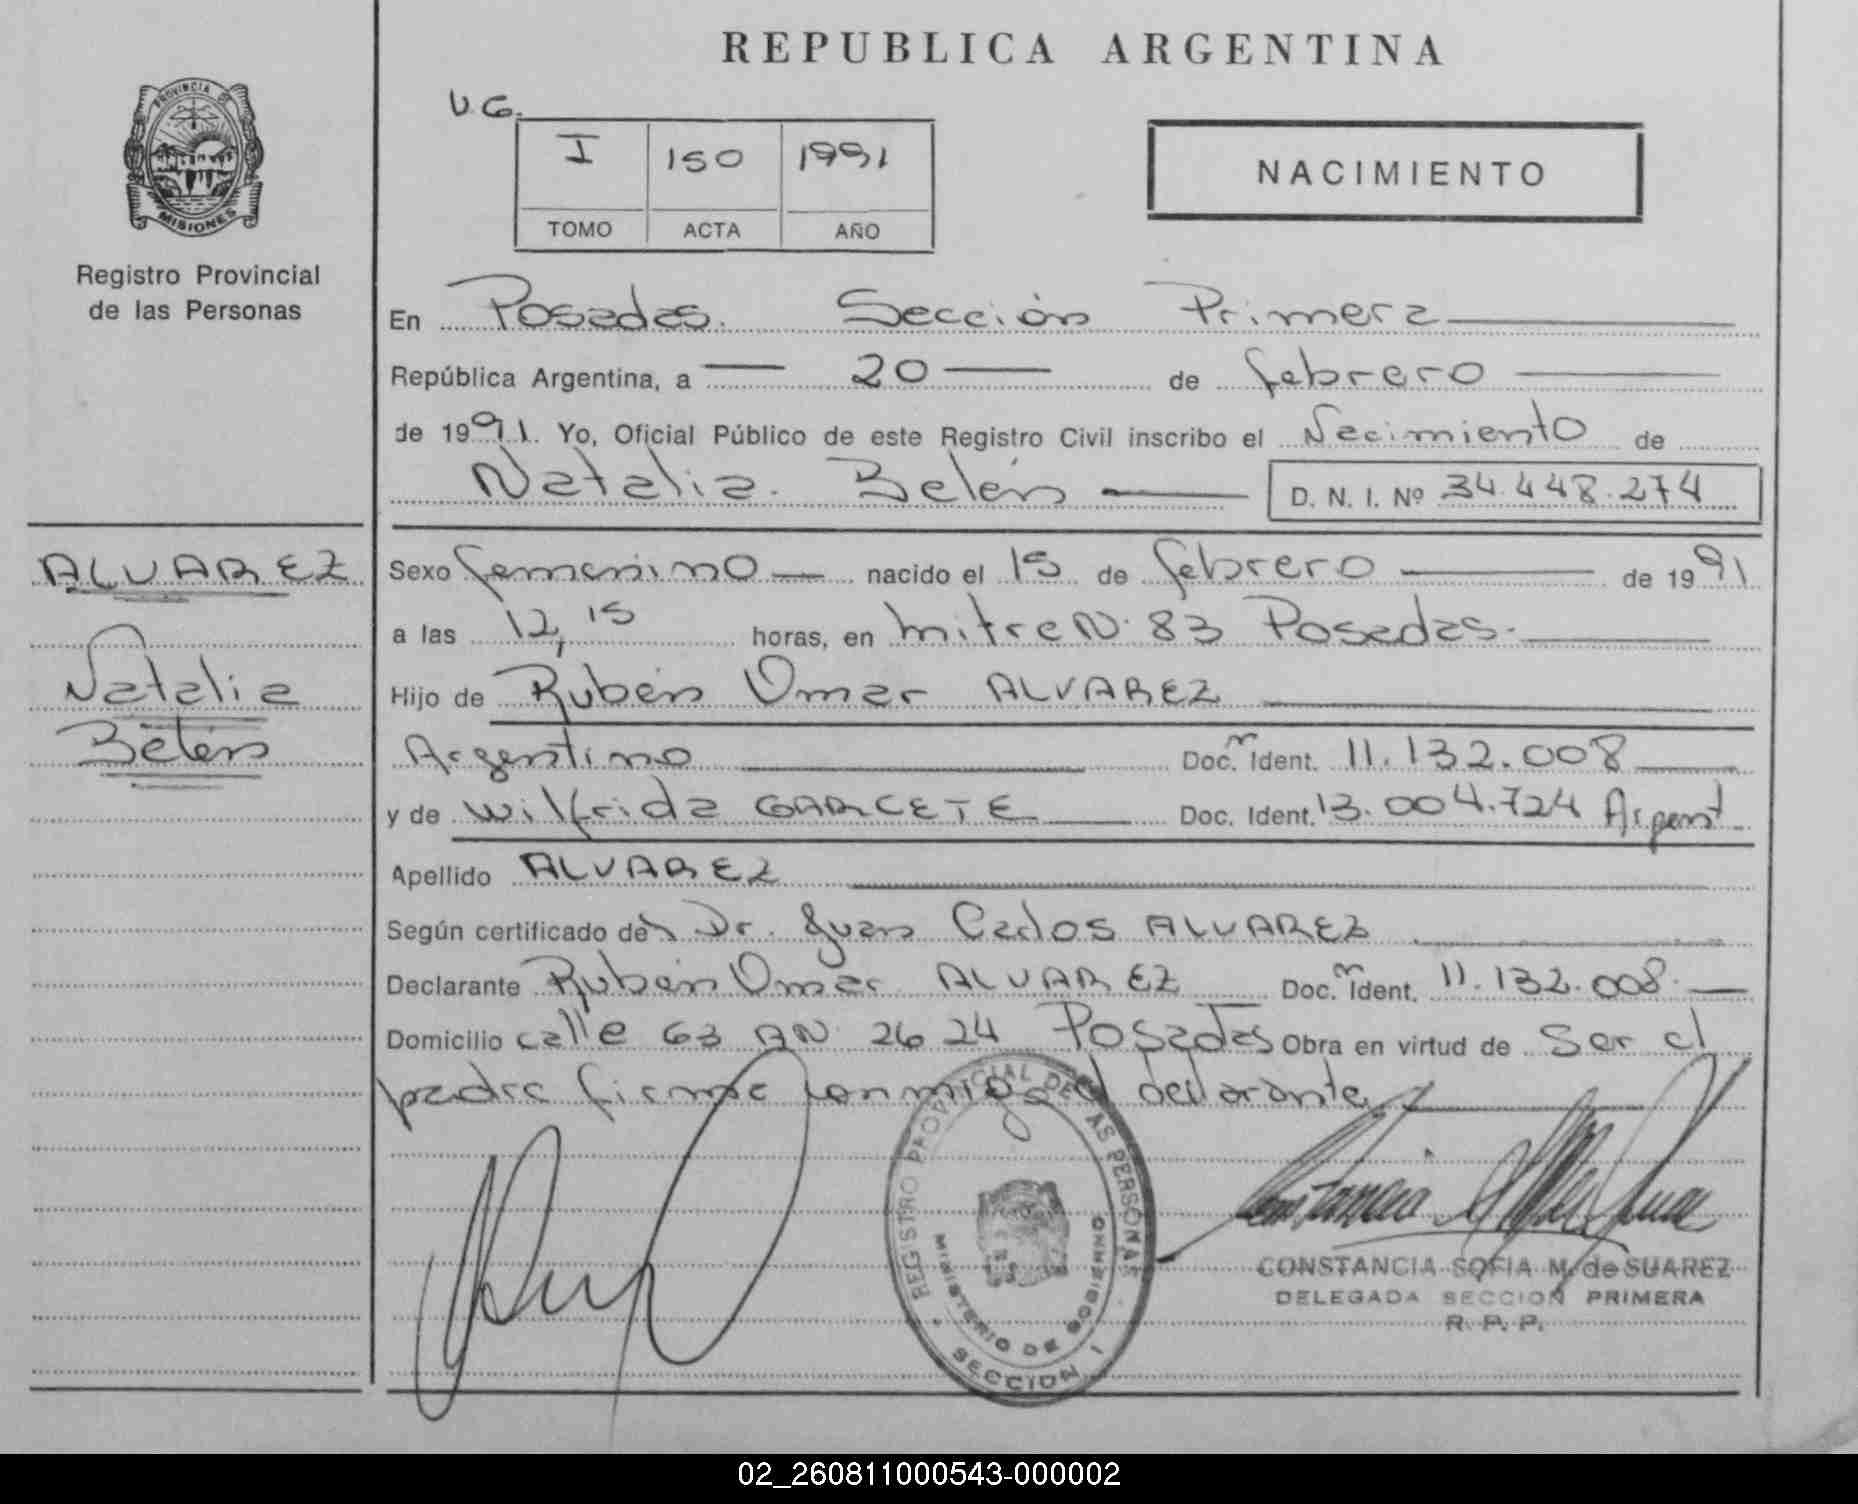 REPUBLICA ARGENTINA
PROVINCIA DE
MISIONES
Registro Provincial
de las Personas
U.G.
I 150 1991
TOMO ACTA AÑO
NACIMIENTO
En Posadas. Sección Primera
República Argentina, a 20 de febrero
de 1991. Yo, Oficial Público de este Registro Civil inscribo el Nacimiento de
Natalia Belén D. N. I. Nº 34.448.274
ALVAREZ
Natalia
Belén
Sexo femenino nacido el 15 de febrero de 1991
a las 12,15 horas, en mitre N. 83 Posadas.
Hijo de Rubén Omar ALVAREZ
Argentino Doc. m Ident. 11.132.008
y de Wilfrida GARCETE Doc. Ident. 13.004.724 Argent
Apellido ALVAREZ
Según certificado del Dr. Juan Carlos ALVAREZ
Declarante Rubén Omar ALVAREZ Doc. m Ident. 11.132.008.
Domicilio calle 63 AN 2624 Posadas Obra en virtud de ser el
padre firma conmigo el declarante
REGISTRO PROVINCIAL DE LAS PERSONAS
MINISTERIO DE GOBIERNO
SECCION 1
CONSTANCIA SOFIA M. de SUAREZ
DELEGADA SECCION PRIMERA
R. P. P.
02_260811000543-000002